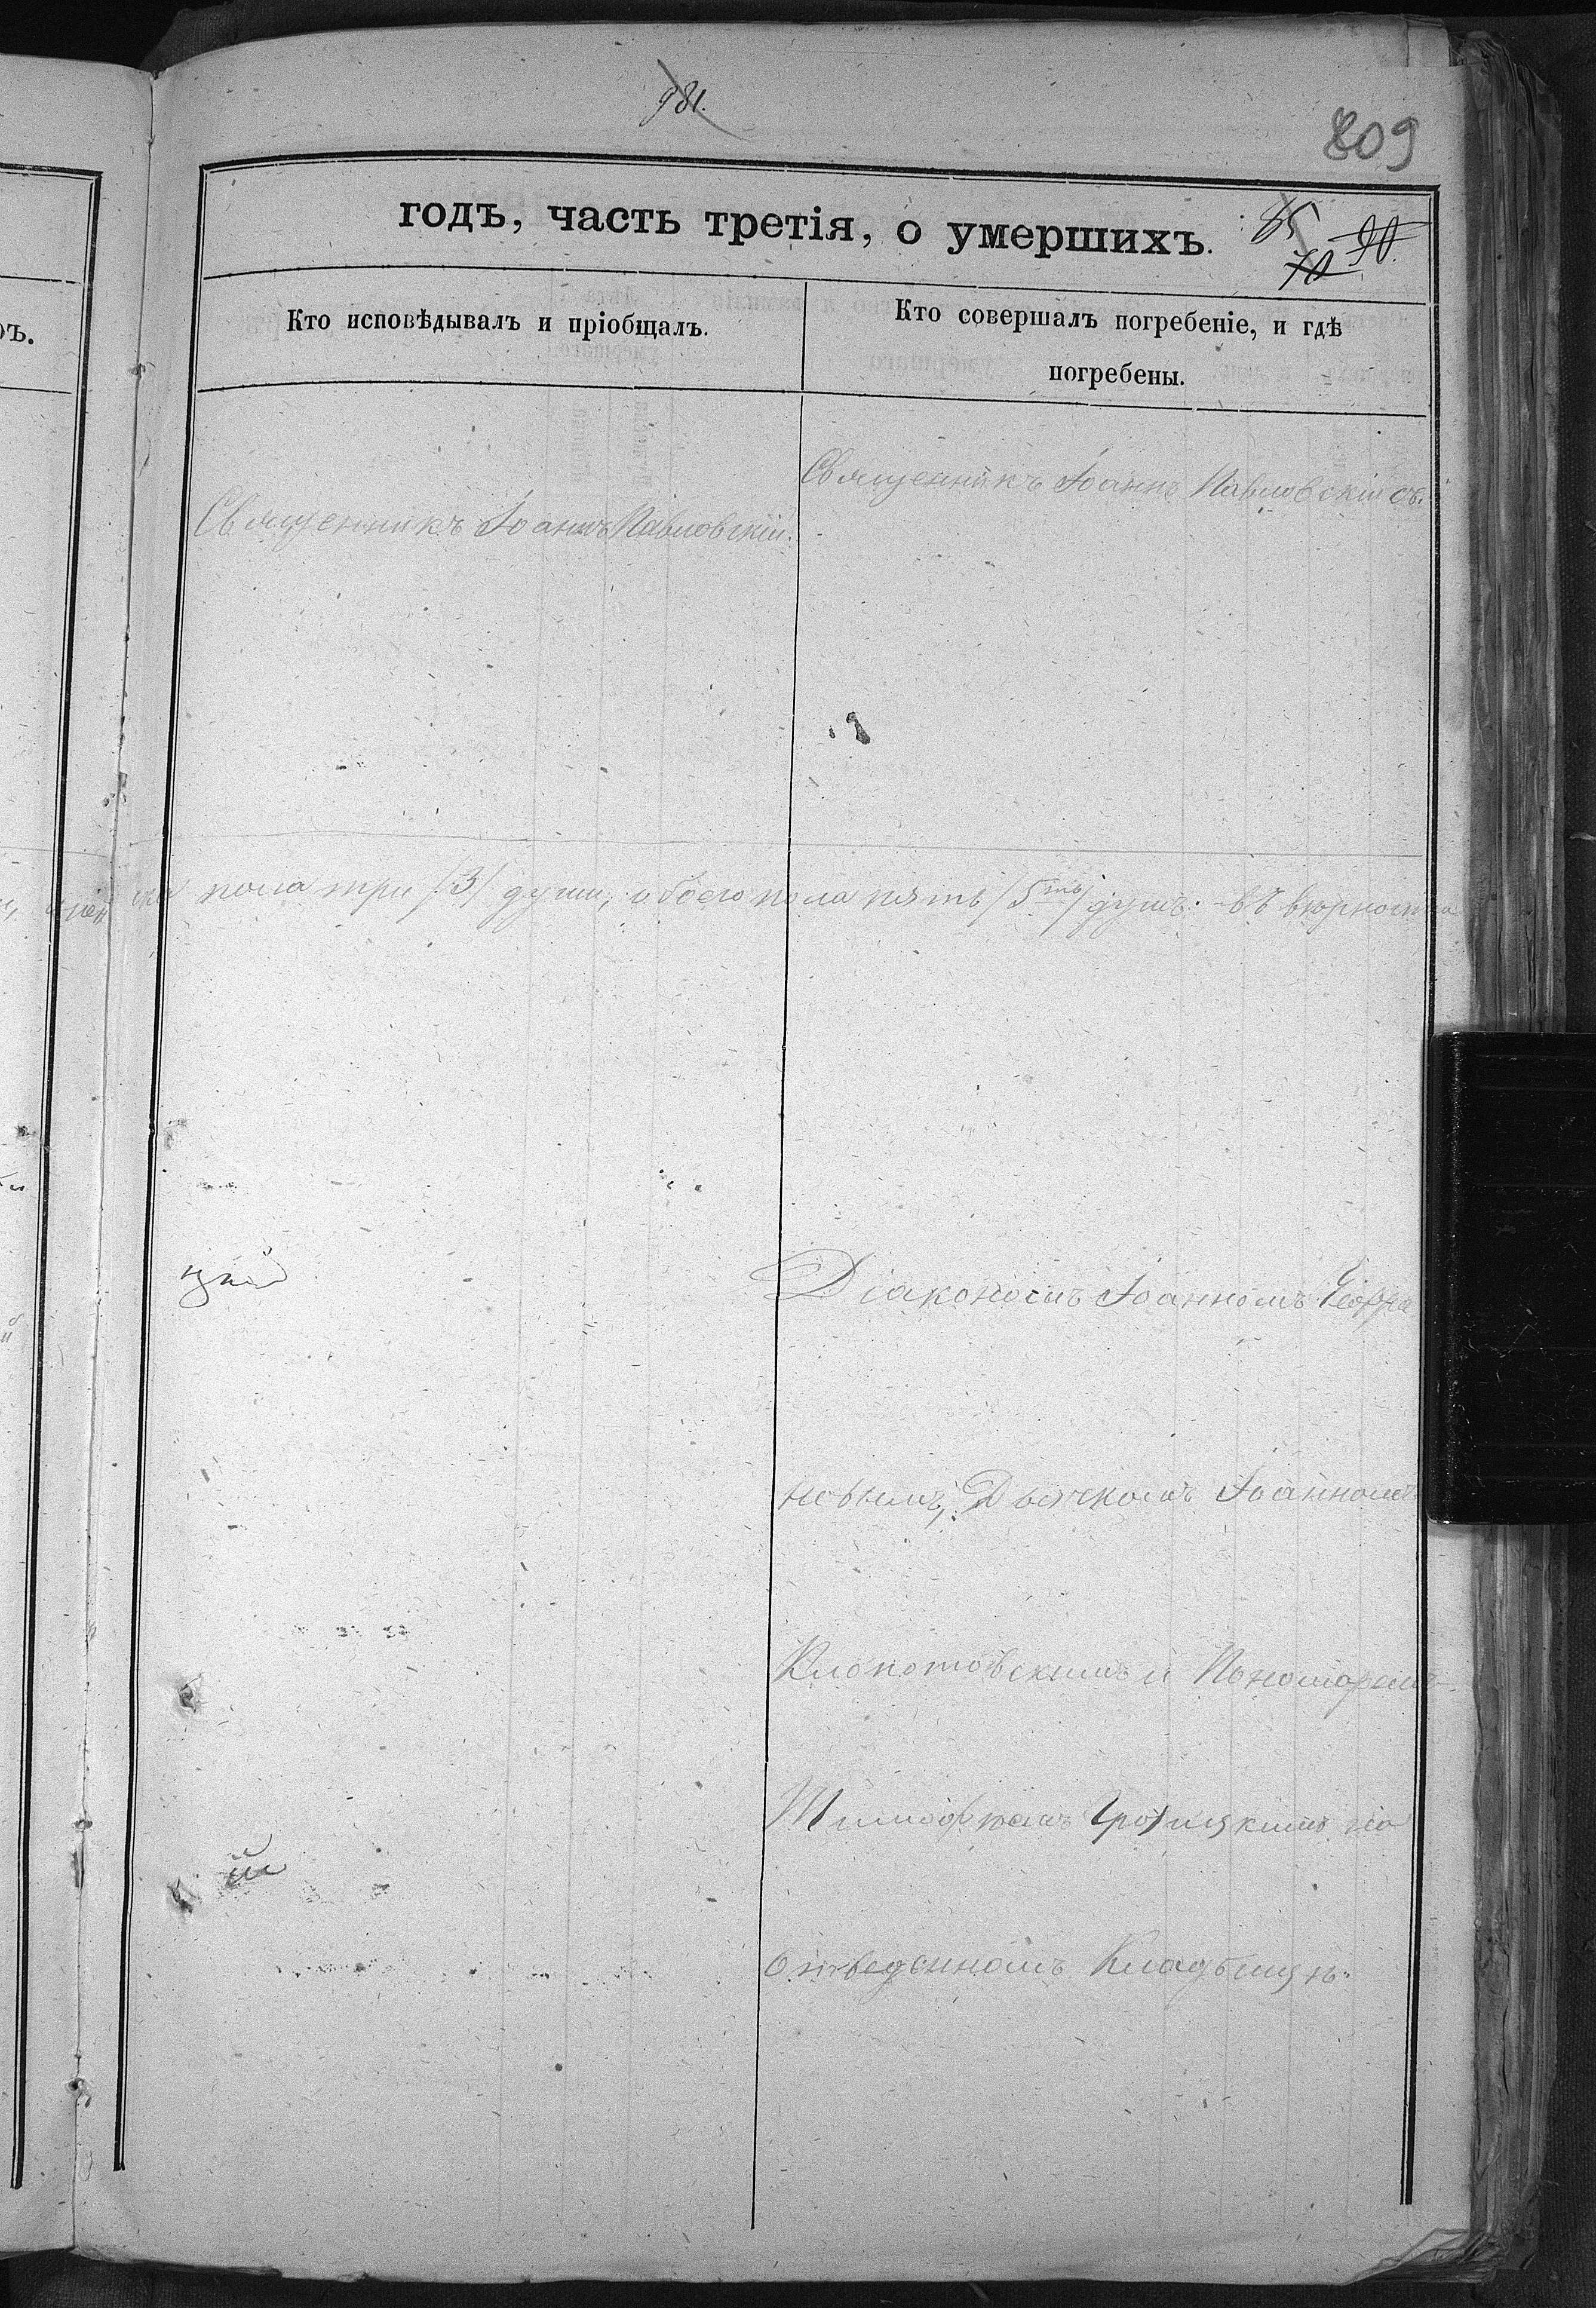 981.
809
годъ, часть третія, о умершихъ.
85
70 90.
ъ.
Кто исповѣдывалъ и пріобщалъ.
Кто совершалъ погребеніе, и гдѣ
погребены.
Священникъ Іоаннъ Павловскій съ
Священникъ Іоаннъ Павловскій.
пола три /3/ души, обоего пола пять /5ть/ душъ. въ
цкій
Діакономъ Іоанномъ
новымъ, Дьячкомъ Іоанномъ
Клопотовскимъ и Пономаремъ
Тимофеемъ на
отведенномъ Кладбищѣ.
ій